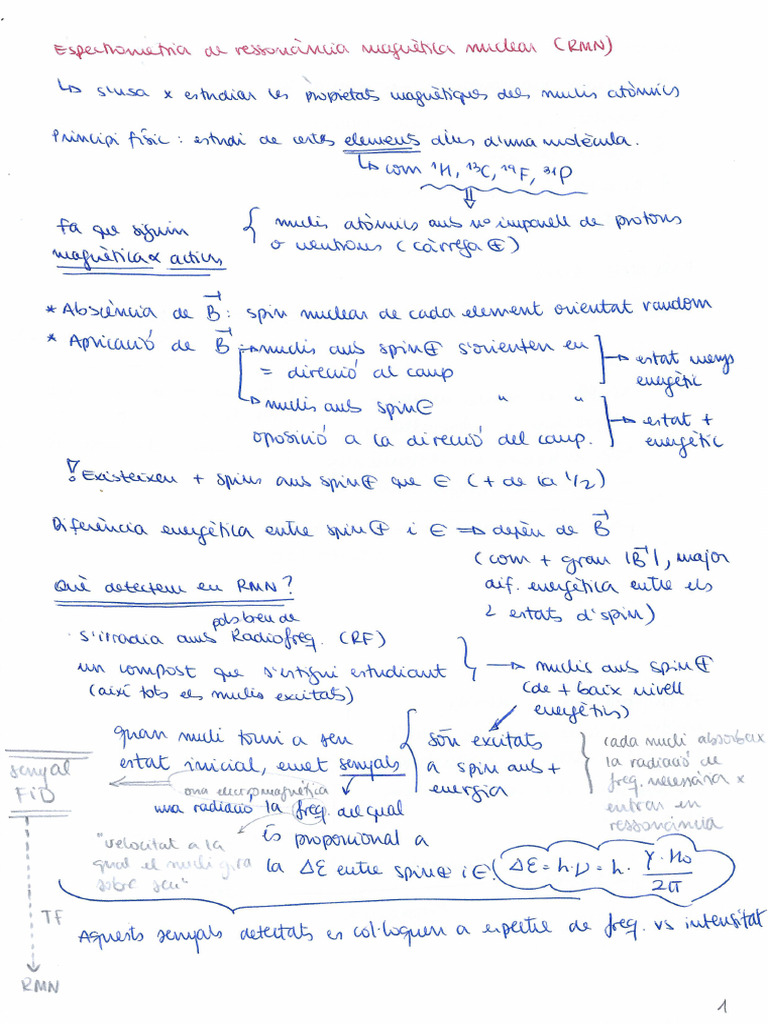 Espectrometria de ressonància magnètica nuclear (RMN)
↳ s'usa x estudiar les propietats magnètiques dels nuclis atòmics
Principi físic: estudi de certs elements dins d'una molècula.
↳ com ¹H, ¹³C, ¹⁹F, ³¹P
⇓
Fa que siguin
magnèticam actius
{ nuclis atòmics amb nº imparell de protons
o neutrons (càrrega ⊕)
* Absència de B⃗: spin nuclear de cada element orientat random
* Aplicació de B⃗: → nuclis amb spin ⊕ s'orienten en
= direcció al camp
→ estat menys
energètic
↳ nuclis amb spin ⊖ " "
oposició a la direcció del camp.
→ estat +
energètic
! Existeixen + spins amb spin ⊕ que ⊖ (+ de la 1/2)
Diferència energètica entre spin ⊕ i ⊖ ⇒ depèn de B⃗
(com + gran |B⃗|, major
dif. energètica entre els
2 estats d'spin)
Què detectem en RMN?
pols breu de
s'irradia amb Radiofreq. (RF)
un compost que s'estigui estudiant
(així tots els nuclis excitats)
→ nuclis amb spin ⊕
(de + baix nivell
energètic)
són excitats
a spin amb +
energia
cada nucli absorbeix
la radiació de
freq. necessària x
entrar en
ressonància
quan nucli torni a seu
estat inicial, emet senyals
ona electromagnètica
una radiació la freq. del qual
és proporcional a
la ΔE entre spin ⊕ i ⊖.
ΔE = h·ν = h · γ·H₀ / 2π
"velocitat a la
qual el nucli gira
sobre seu"
senyal
FID
TF
RMN
Aquests senyals detectats es col·loquen a espectre de freq. vs intensitat
1